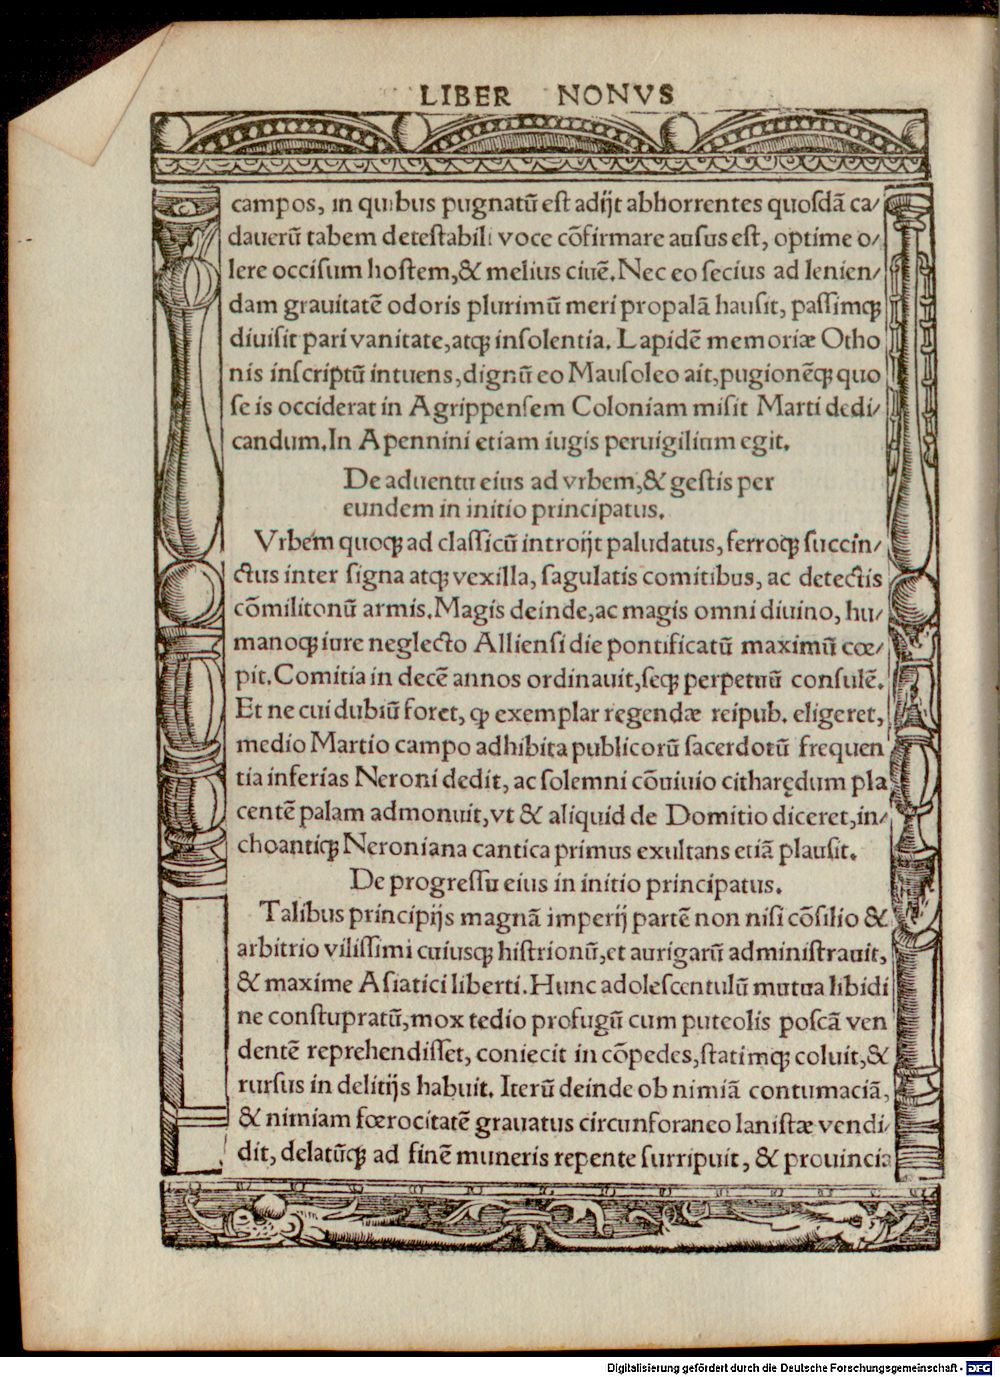 LIBER NONVS
campos, in quibus pugnatũ eſt adijt abhorrentes quoſdã ca/
dauerũ tabem deteſtabili voce cõfirmare auſus eſt, optime o/
lere occiſum hoſtem,& melius ciuẽ. Nec eo ſecius ad lenien/
dam grauitatẽ odoris plurimũ meri propalã hauſit, paſſimqȝ
diuiſit pari vanitate,atqȝ inſolentia. Lapidẽ memoriæ Otho
nis inſcriptũ intuens,dignũ eo Mauſoleo ait,pugionẽqȝ quo
ſe is occiderat in Agrippenſem Coloniam miſit Marti dedi/
candum.In Apennini etiam iugis peruigilium egit.
De aduentu eius ad vrbem,& geſtis per
eundem in initio principatus.
Vrbem quoqȝ ad claſſicũ introijt paludatus, ferroqȝ ſuccin/
ctus inter ſigna atqȝ vexilla, ſagulatis comitibus, ac detectis
cõmilitonũ armis.Magis deinde,ac magis omni diuino, hu/
manoqȝ iure neglecto Allienſi die pontificatũ maximũ cœ/
pit.Comitia in decẽ annos ordinauit,ſeqȝ perpetuũ conſulẽ.
Et ne cui dubiũ foret, ꝙ exemplar regendæ reipub. eligeret,
medio Martio campo adhibita publicorũ ſacerdotũ frequen
tia inferias Neroni dedit, ac ſolemni cõuiuio citharędum pla
centẽ palam admonuit,vt & aliquid de Domitio diceret,in/
choantiqȝ Neroniana cantica primus exultans etiã plauſit.
De progreſſu eius in initio principatus.
Talibus principijs magnã imperij partẽ non niſi cõſilio &
arbitrio viliſſimi cuiusqȝ hiſtrionũ,et aurigarũ adminiſtrauit,
& maxime Aſiatici liberti.Hunc adoleſcentulũ mutua libidi
ne conſtupratũ,mox tedio profugũ cum puteolis poſcã ven
dentẽ reprehendiſſet, coniecit in cõpedes,ſtatimqȝ coluit,&
rurſus in delitijs habuit. Iterũ deinde ob nimiã contumaciã,
& nimiam fœrocitatẽ grauatus circunforaneo laniſtæ vendi/
dit, delatũqȝ ad finẽ muneris repente ſurripuit, & prouincia
Digitalisierung gefördert durch die Deutsche Forschungsgemeinschaft - DFG